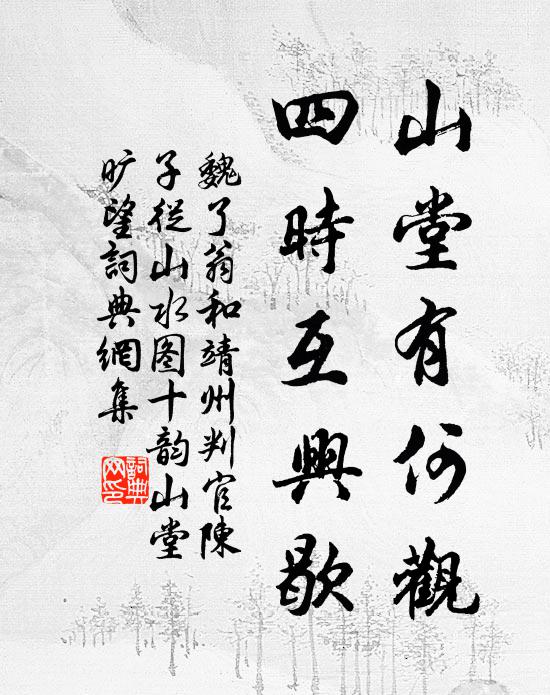 山堂有何觀
四時互興歇
魏了翁和靖州判官陳
子從山水图十韵山堂
旷望詞典網集
詞典
网印